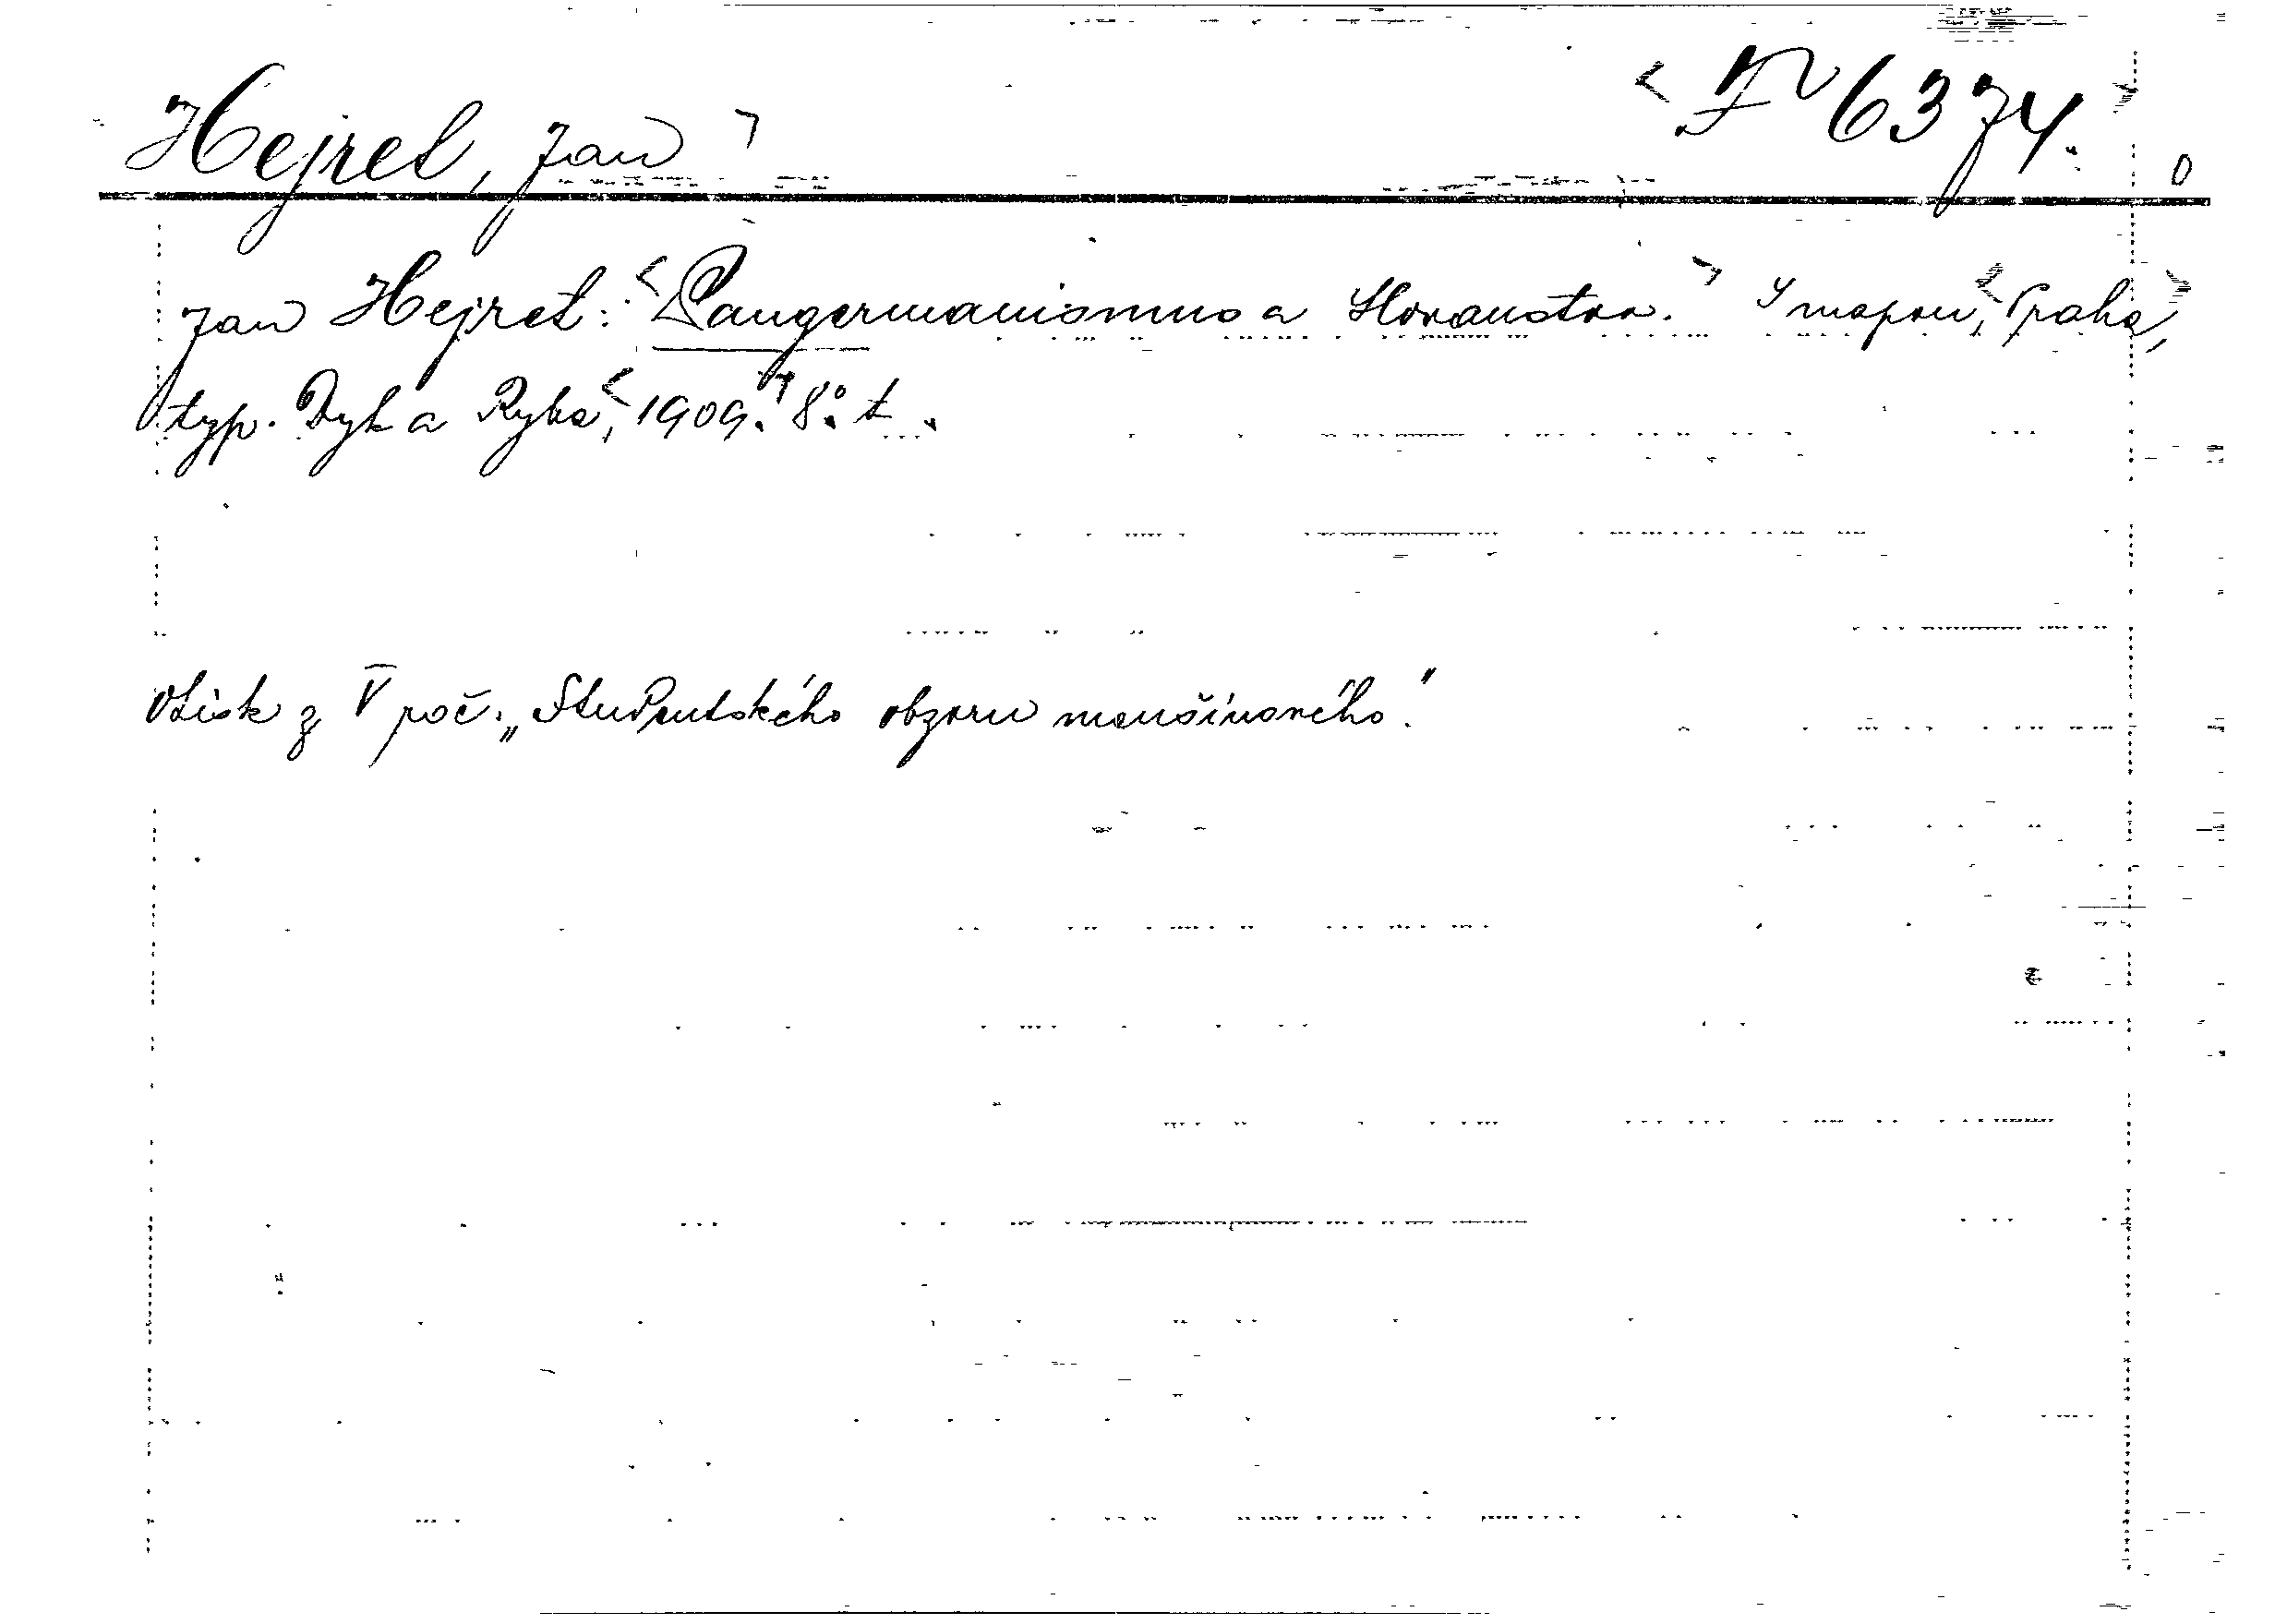 Hejret, Jan
F 6374.
Jan Hejret: Pangermanismus a Slovanstvo. S mapou, Praha,
typ. Dyk a Ryba, 1909. 8° t.
Otisk z V poč. „Studentského obzoru menšinového."